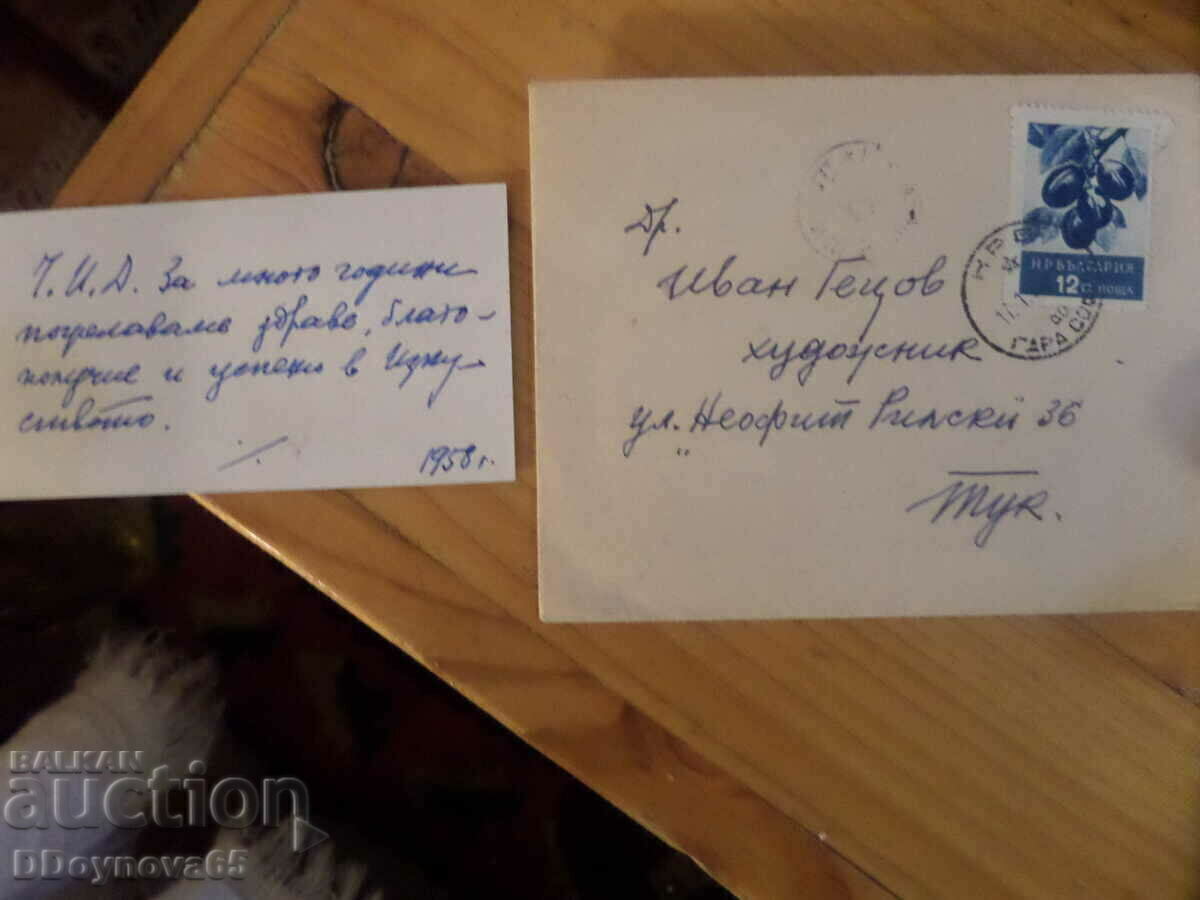 Ч.И.Д. За много години
пожелаваме здраве, благо-
получие и успехи в Изку-
ството.
1958 г.
Др.
Иван Гецов
художник
ул. "Неофит Рилски 36
Тук.
Н Р БЪЛГАРИЯ
12 ст. ПОЩА
ГАРА СОФ
BALKAN
auction
DDoynova65